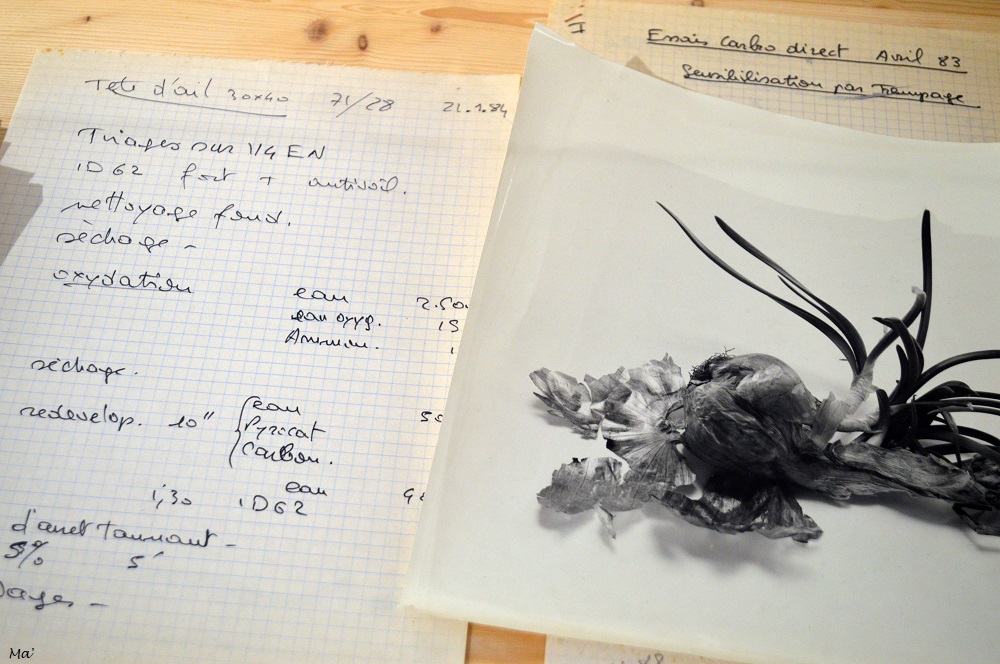 Tête d'ail 30x40 71/28 21.1.84
Tirages sur 114 EN
ID62 fort + antivoil.
nettoyage fond.
séchage -
oxydation eau 2.50
eau oxyg. 15
Ammon. 1
séchage.
redevelop. 10" eau 50
Pyrocat
Carbon.
eau
1,30 ID62
d'arret Tannant -
5% 5'
Essais Carbro direct Avril 83
Sensibilisation par Trempage
Ma'